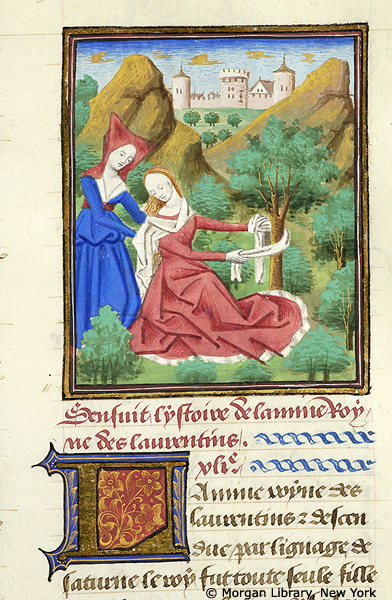 Sensuit lystoire de lamine Roy
ne des laurentins.
xlie.
LAmine royne des
laurentins & descen
due par lignage de
saturne le roy fut toute seule fille
© Morgan Library, New York